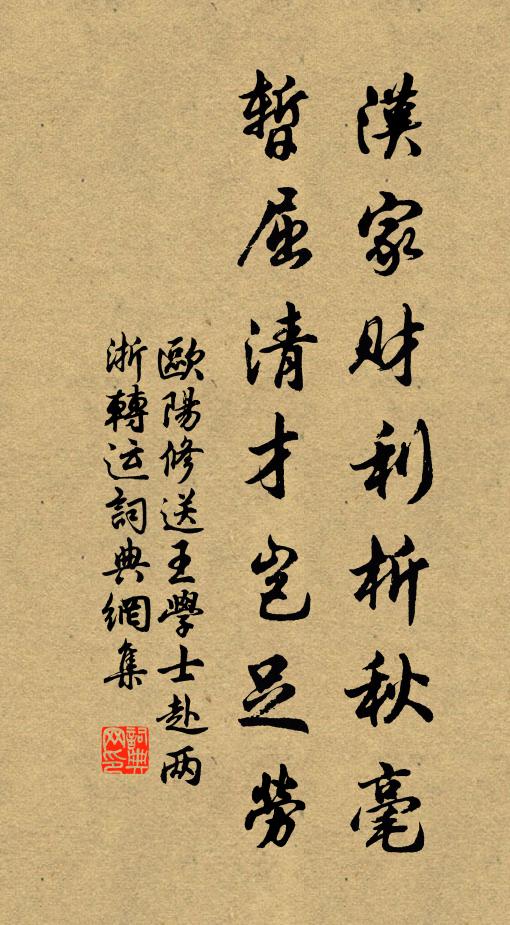 漢家財利析秋毫
暫屈清才豈足勞
歐陽修送王學士赴两
浙轉运詞典網集
詞典网印